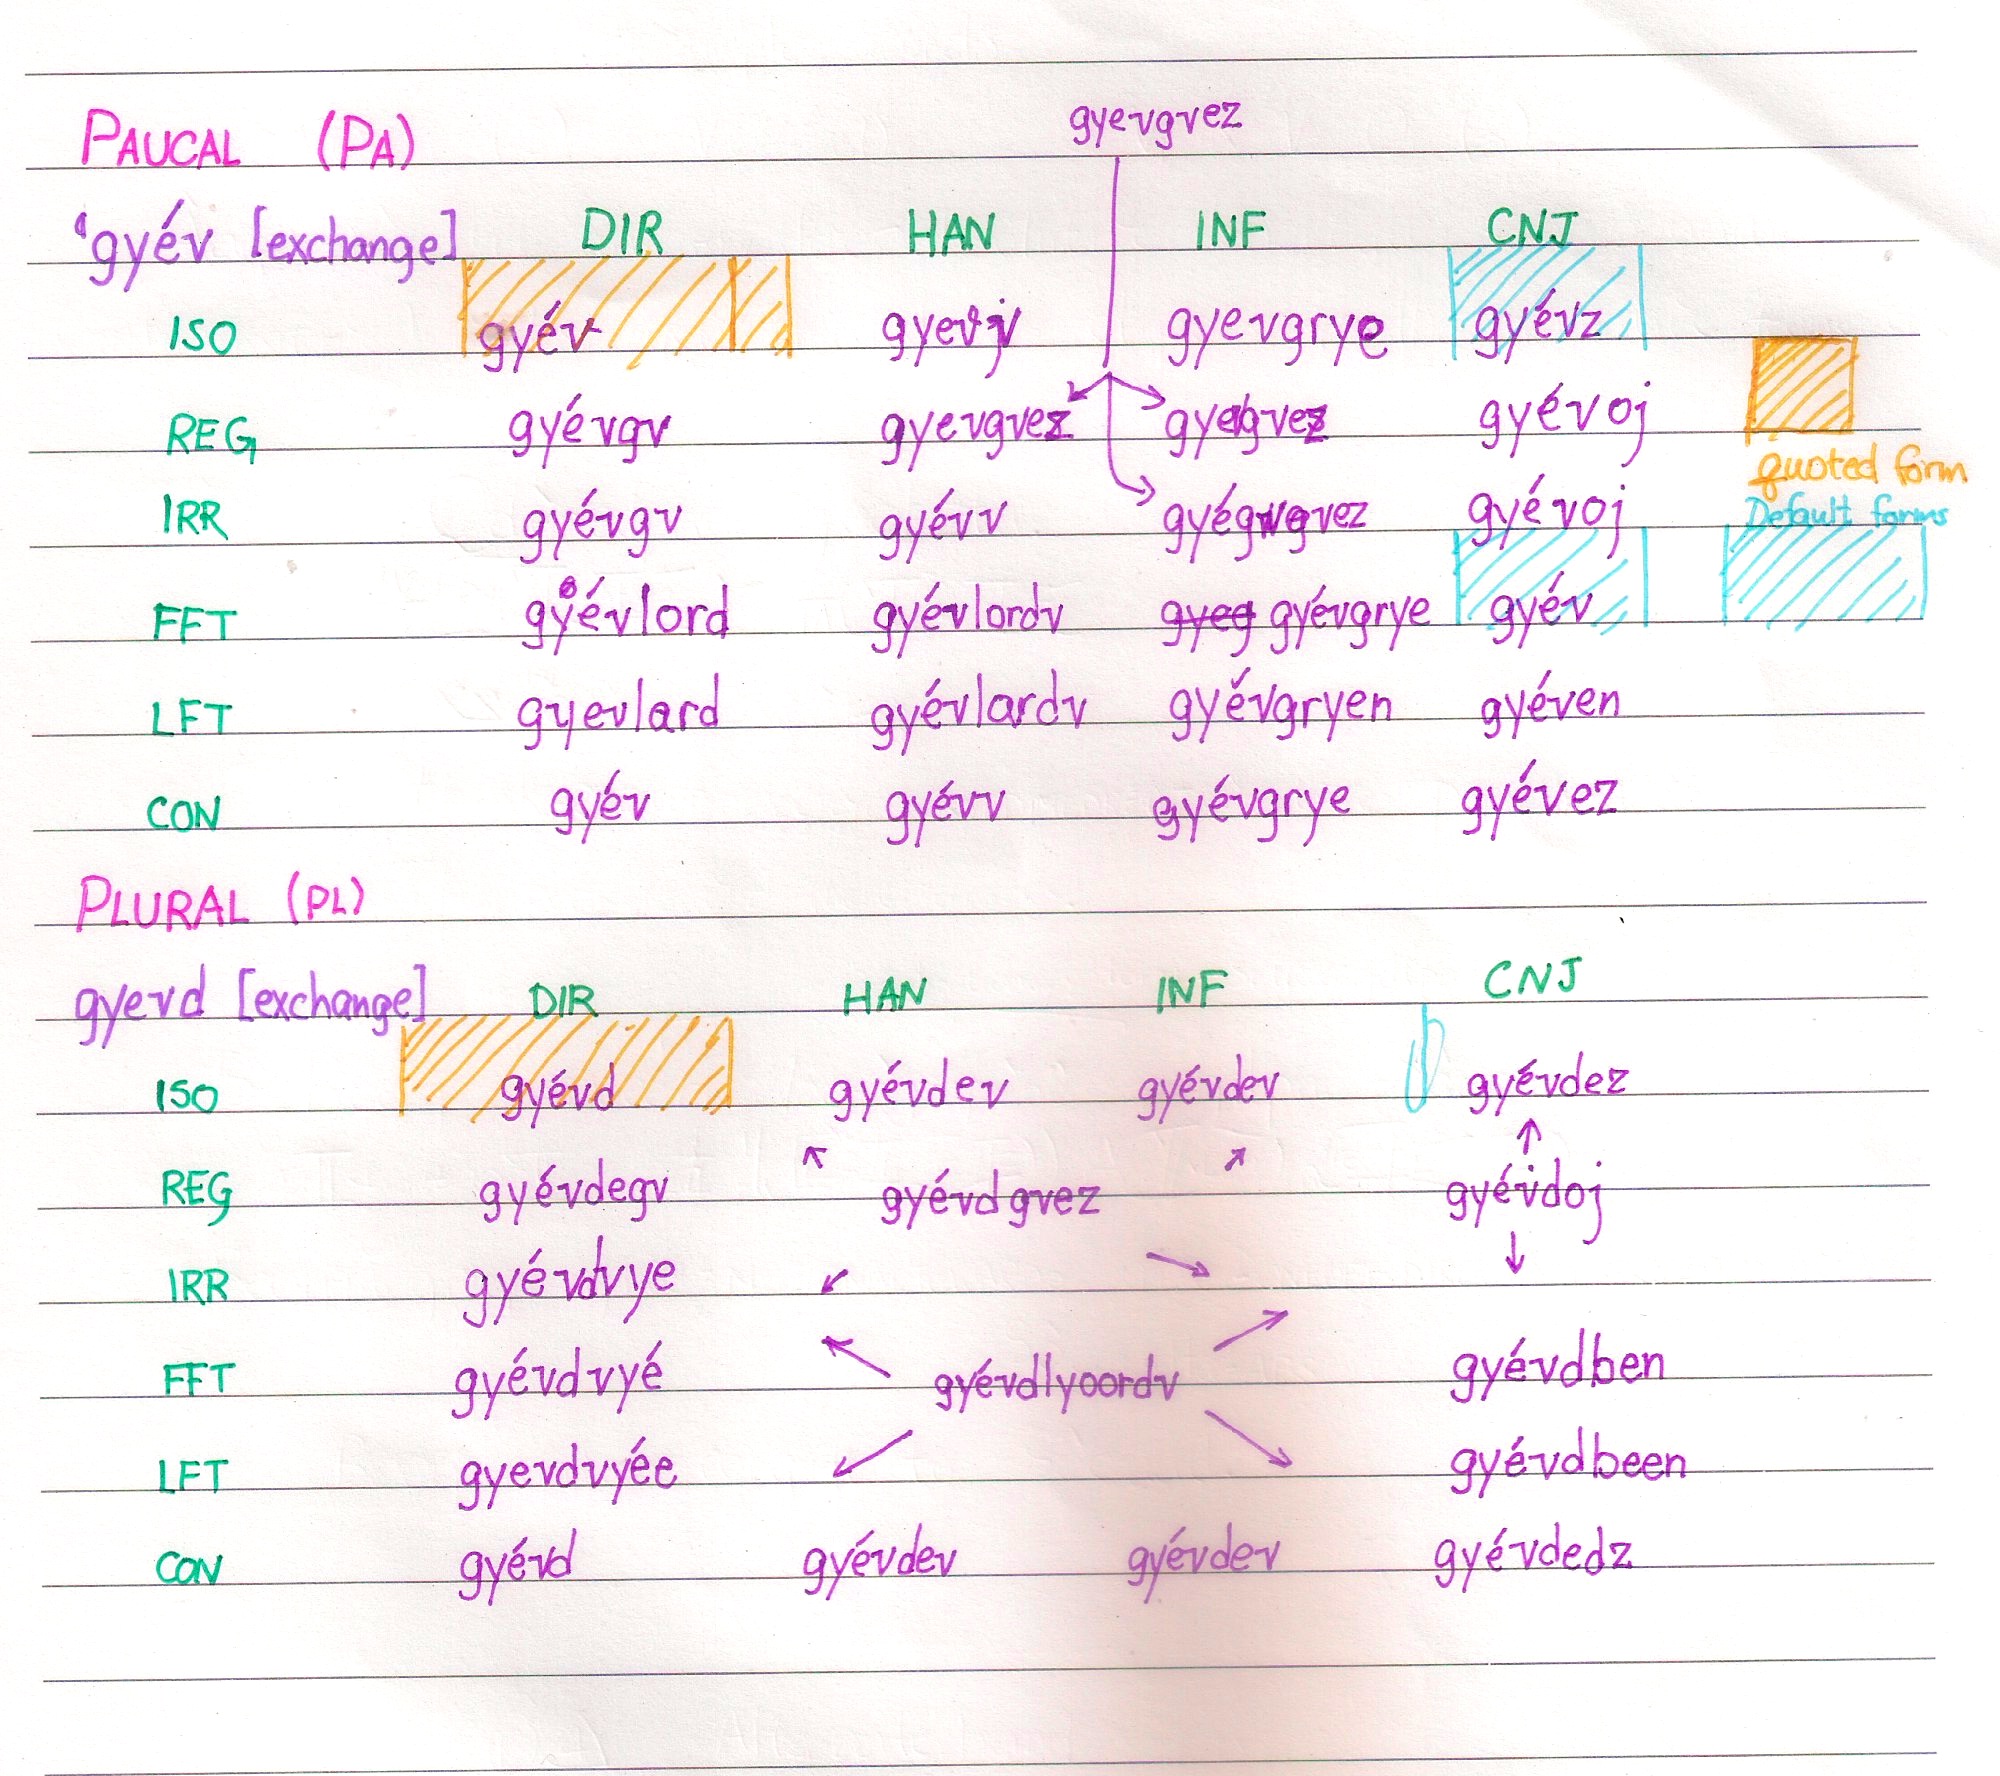 gyevgvez
PAUCAL (PA)
'gyév [exchange] DIR HAN INF CNJ
ISO gyév gyevjv gyevgrye gyévz
REG gyévgv gyevgvez gyevgvez gyévoj
quoted form
IRR gyévgv gyévv gyévoj
Default forms
FFT gyévlord gyévlordv gyeg gyévgrye gyév
LFT gyevlard gyévlardv gyévgryen gyéven
CON gyév gyévv gyévgrye gyévez
PLURAL (PL)
gyevd [exchange] DIR HAN INF CNJ
ISO gyévd gyévdev gyévdev gyévdez
REG gyévdegv gyévdgvez gyévdoj
IRR gyévdvye
FFT gyévdvyé gyévdlyoordv gyévdben
LFT gyevdvyée gyévdbeen
CON gyévd gyévdev gyévdev gyévdedz